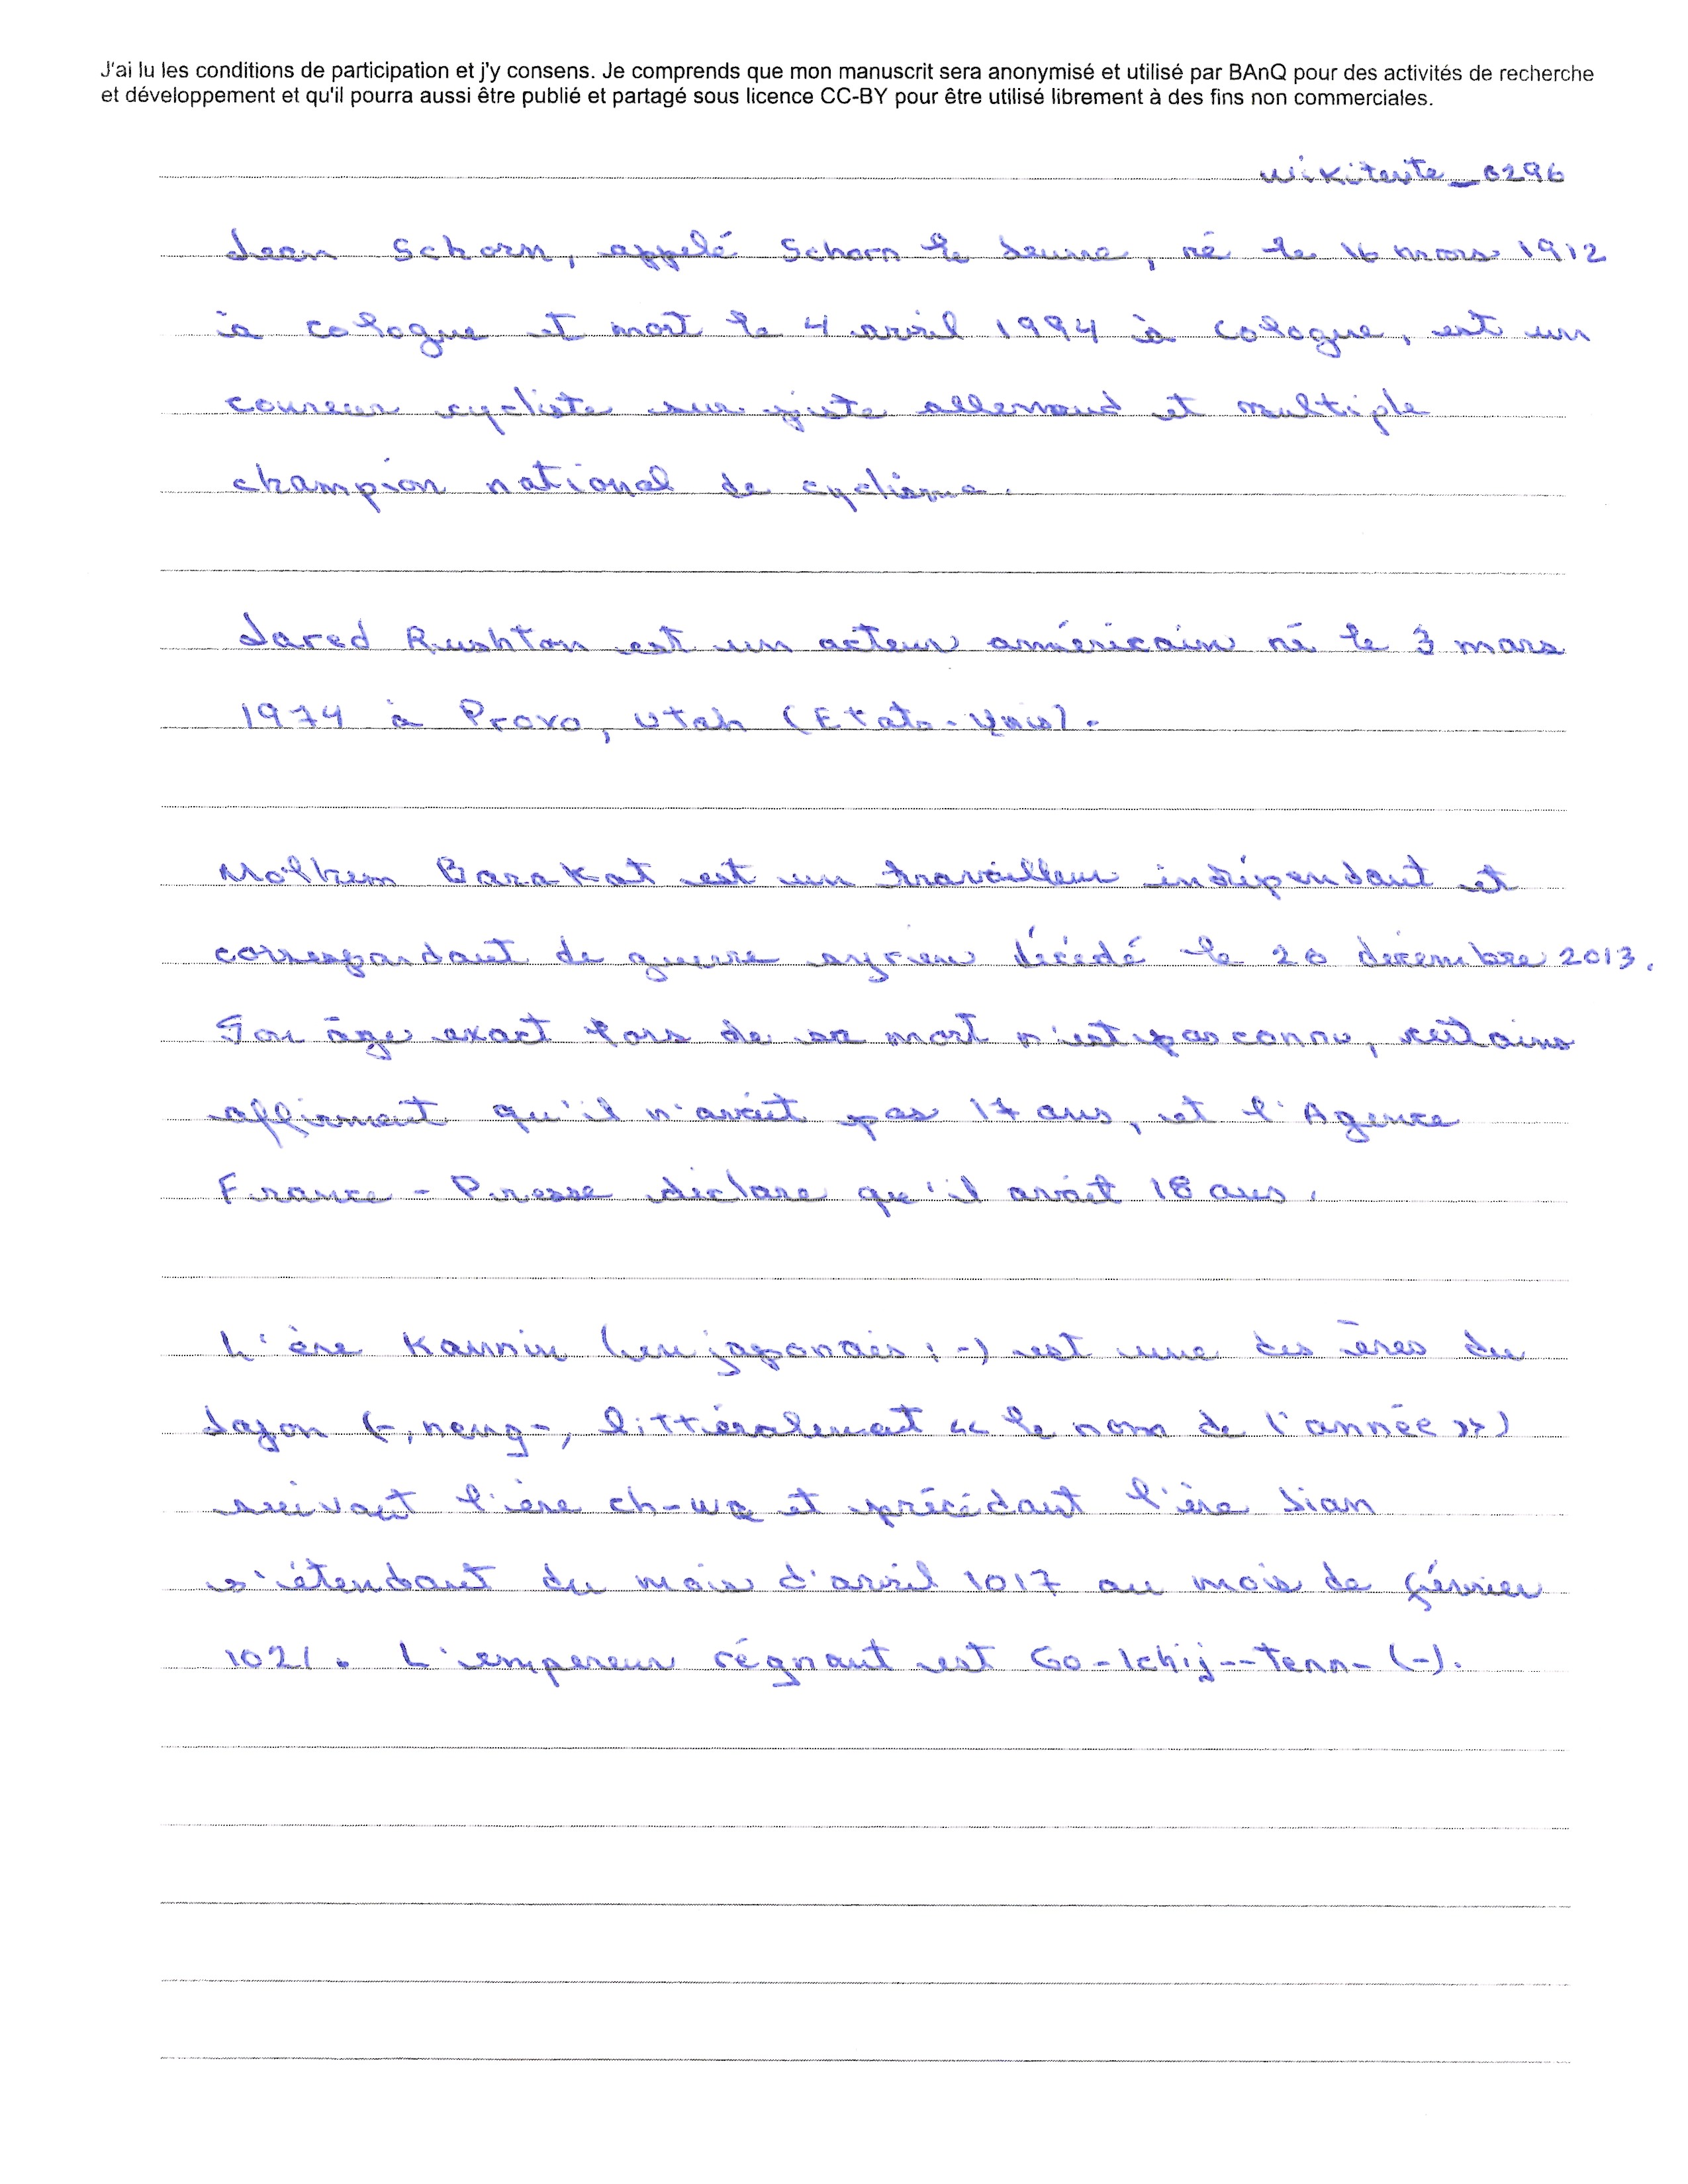 J'ai lu les conditions de participation et j'y consens. Je comprends que mon manuscrit sera anonymisé et utilisé par BAnQ pour des activités de recherche
et développement et qu'il pourra aussi être publié et partagé sous licence CC-BY pour être utilisé librement à des fins non commerciales.
wikitexte_0296
Jean Schorn, appelé Schorn le Jeune, né le 16 mars 1912
à Cologne et mort le 4 avril 1994 à Cologne, est un
coureur cycliste sur piste allemand et multiple
champion national de cyclisme.
Jared Rushton est un acteur américain né le 3 mars
1974 à Provo, Utah (Etats-Unis).
Molhem Barakat est un travailleur indépendant et
correspondant de guerre syrien décédé le 20 décembre 2013.
Son âge exact lors de sa mort n'est pas connu, certains
affirment qu'il n'avait pas 17 ans, et l'Agence
France-Presse déclare qu'il avait 18 ans.
L'ère Kannin (en japonais : -) est une des ères du
Japon (-, neng-, littéralement « le nom de l'année »)
suivant l'ère Ch-wa et précédant l'ère Jian
s'étendant du mois d'avril 1017 au mois de février
1021. L'empereur régnant est Go-Ichij--tenn- (-).